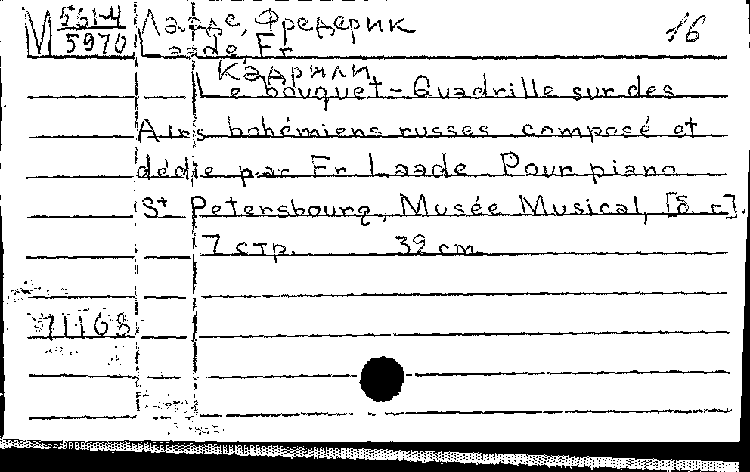 М 561-4/5970 Лааде, Фредерик 16
Laade Fr
Кадрили
Le bouquet - Quadrille sur des
Airs bohémiens russes composé et
dédie par Fr Laade Pour piano
St Petersbourg, Musée Musical, [б г].
7 стр. 32 cm
71168